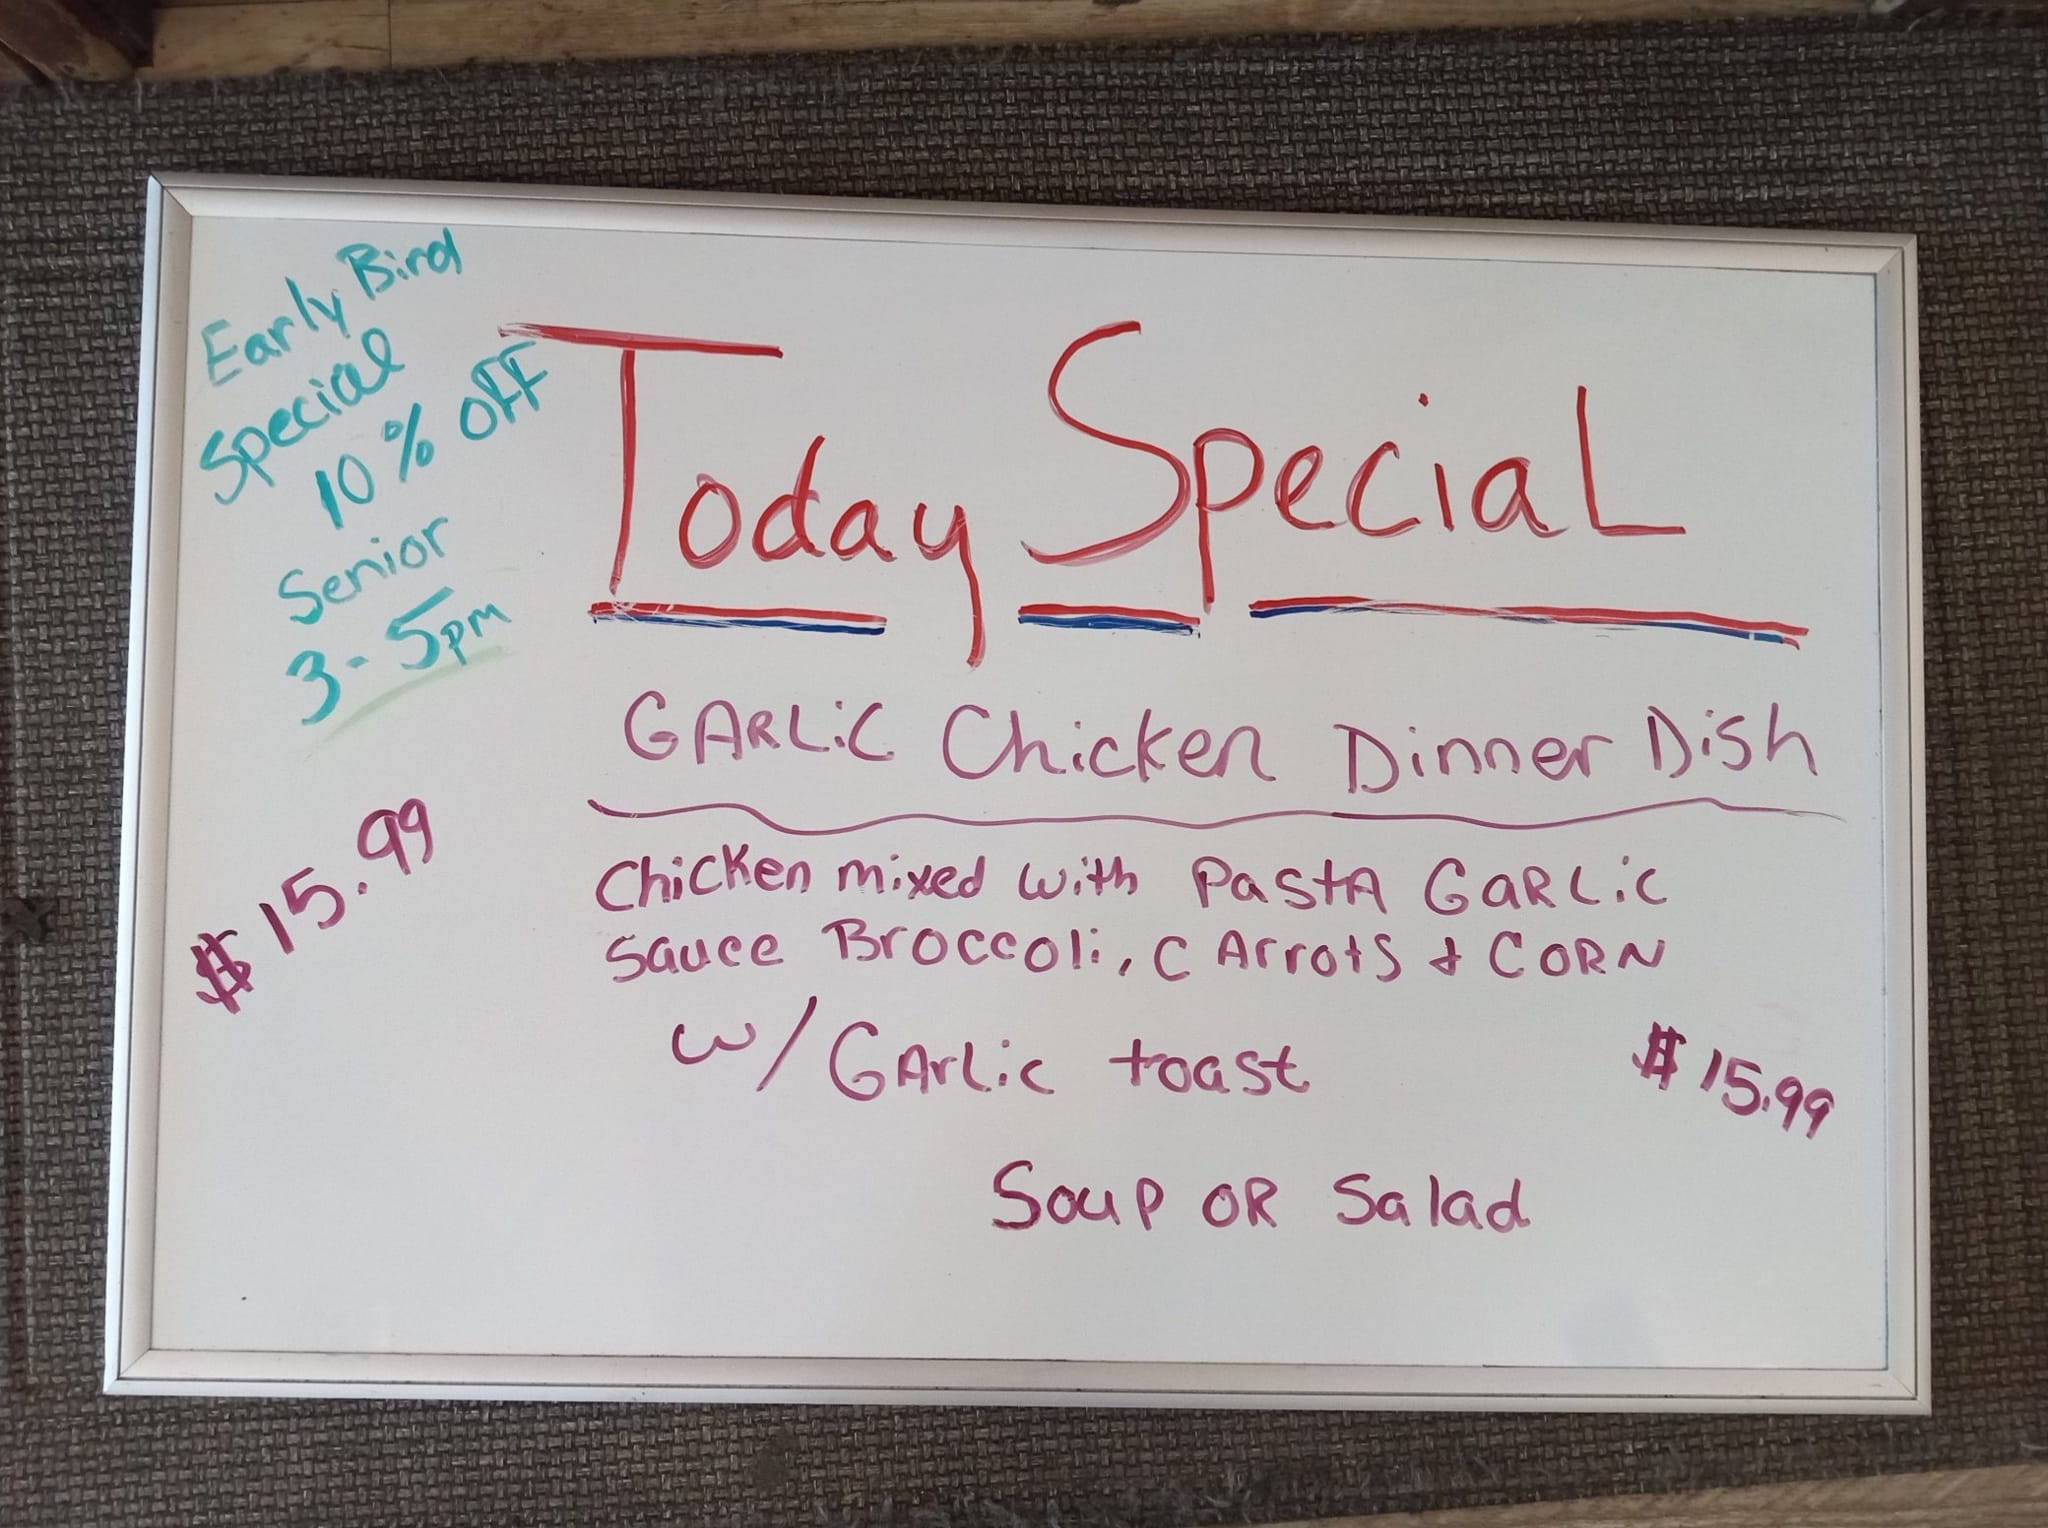 Early Bird
Special
10% OFF
Senior
3-5pm
Today Special
$15.99
GARLiC Chicken Dinner Dish
Chicken mixed with PastA GaRLic
Sauce Broccoli, CArrots & CORN
w/ GArLic toast
$15.99
Soup OR Salad